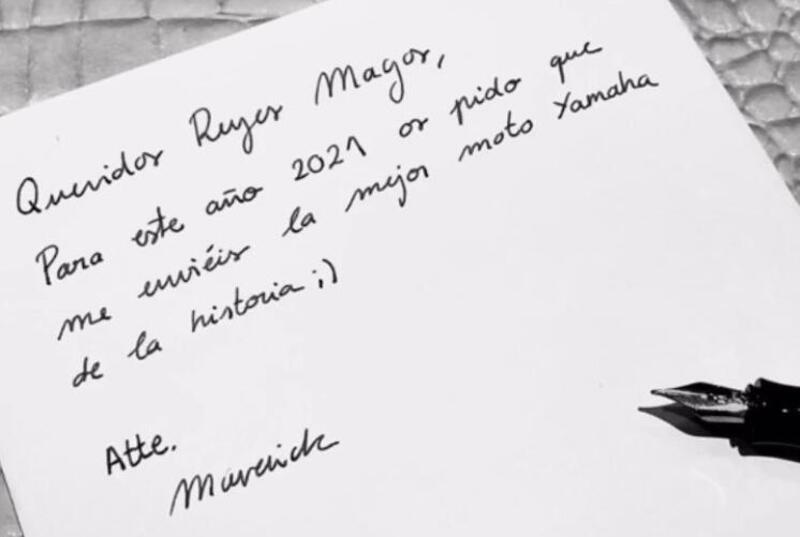 Queridos Reyes Magos,
Para este año 2021 os pido que
me enviéis la mejor moto Yamaha
de la historia ;)
Atte.
Maverick